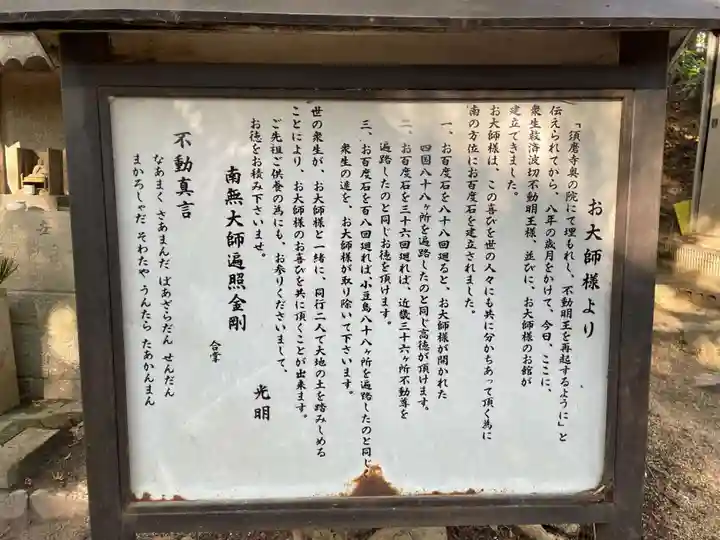 お大師様より
「須磨寺奥の院にて埋もれし、不動明王を再起するように」と
伝えられてから、八年の歳月をかけて、今日、ここに、
衆生救済波切不動明王様、並びに、お大師様のお館が
建立できました。
お大師様は、この喜びを世の人々にも共に分かちあって頂く為に
南の方位にお百度石を建立されました。
一、お百度石を八十八回廻ると、お大師様が開かれた
四国八十八ヶ所を遍路したのと同じ高徳が頂けます。
二、お百度石を三十六回廻れば、近畿三十六ヶ所不動尊を
遍路したのと同じお徳を頂けます。
三、お百度石を百八回廻れば、小豆島八十八ヶ所を遍路したのと同じ、
衆生の達を、お大師様が取り除いて下さいます。
世の衆生が、お大師様と一緒に、同行二人で大地の土を踏みしめる
ことにより、お大師様のお喜びを共に頂くことが出来ます。
ご先祖ご供養の為にも、お参りくださいまして、
お徳をお積み下さいませ。
光明
南無大師遍照金剛
合掌
不動真言
なあまく さあまんだ ばあざらだん せんだん
まかろしゃだ そわたや うんたら たあかんまん